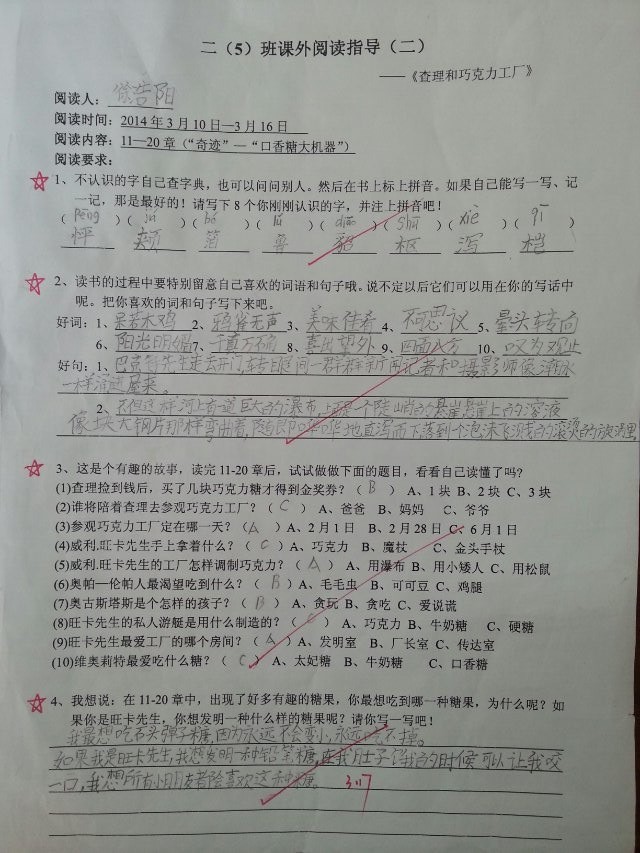 二（5）班课外阅读指导（二）
——《查理和巧克力工厂》
阅读人：
阅读时间：2014年3月10日—3月16日
阅读内容：11—20章（“奇迹”—“口香糖大机器”）
阅读要求：
1、不认识的字自己查字典，也可以问问别人。然后在书上标上拼音。如果自己能写一写、记
一记，那是最好的！请写下8个你刚刚认识的字，并注上拼音吧！
（pēng）（jiá）（hú）（lǔ）（diāo）（shū）（xiè）（qǐ）
怦 颊 鲁 貂 枢 泻
2、读书的过程中要特别留意自己喜欢的词语和句子哦。说不定以后它们可以用在你的写话中
呢。把你喜欢的词和句子写下来吧。
好词：1、呆若木鸡 2、鸦雀无声 3、美味佳肴 4、不可思议 5、晕头转向
6、阳光明媚 7、千真万确 8、喜出望外 9、四面八方 10、叹为观止
好句：1、巴克特先生走去开门，转眼间一群群新闻记者和摄影师像潮水
一样涌进屋来。
2、不但这样河上奇迹巨大的瀑布，上面是个陡峭的悬崖悬崖上的溶液
像块大钢片那样弯曲着，随即哗哗地直泻而下落到个泡沫飞溅的滚滚的旋涡里
3、这是个有趣的故事，读完11-20章后，试试做做下面的题目，看看自己读懂了吗？
(1)查理捡到钱后，买了几块巧克力糖才得到金奖券？（B）A、1块 B、2块 C、3块
(2)谁将陪着查理去参观巧克力工厂？（C）A、爸爸 B、妈妈 C、爷爷
(3)参观巧克力工厂定在哪一天？（A）A、2月1日 B、2月28日 C、6月1日
(4)威利.旺卡先生手上拿着什么？（C）A、巧克力 B、魔杖 C、金头手杖
(5)威利.旺卡先生的工厂怎样调制巧克力？（A）A、用瀑布 B、用小矮人 C、用松鼠
(6)奥帕—伦帕人最渴望吃到什么？（B）A、毛毛虫 B、可可豆 C、鸡腿
(7)奥古斯塔斯是个怎样的孩子？（B）A、贪玩 B、贪吃 C、爱说谎
(8)旺卡先生的私人游艇是用什么制造的？（C）A、巧克力 B、牛奶糖 C、硬糖
(9)旺卡先生最爱工厂的哪个房间？（A）A、发明室 B、厂长室 C、传达室
(10)维奥莉特最爱吃什么糖？（C）A、太妃糖 B、牛奶糖 C、口香糖
4、我想说：在11-20章中，出现了好多有趣的糖果，你最想吃到哪一种糖果，为什么呢？如
果你是旺卡先生，你想发明一种什么样的糖果呢？请你写一写吧！
我最想吃石头弹子糖，因为永远不会变小，永远吃不掉。
如果我是旺卡先生，我想发明一种铅笔糖，在我月土字饿的时候可以让我咬
一口，我想所有小朋友者都会喜欢这种糖。
3.17